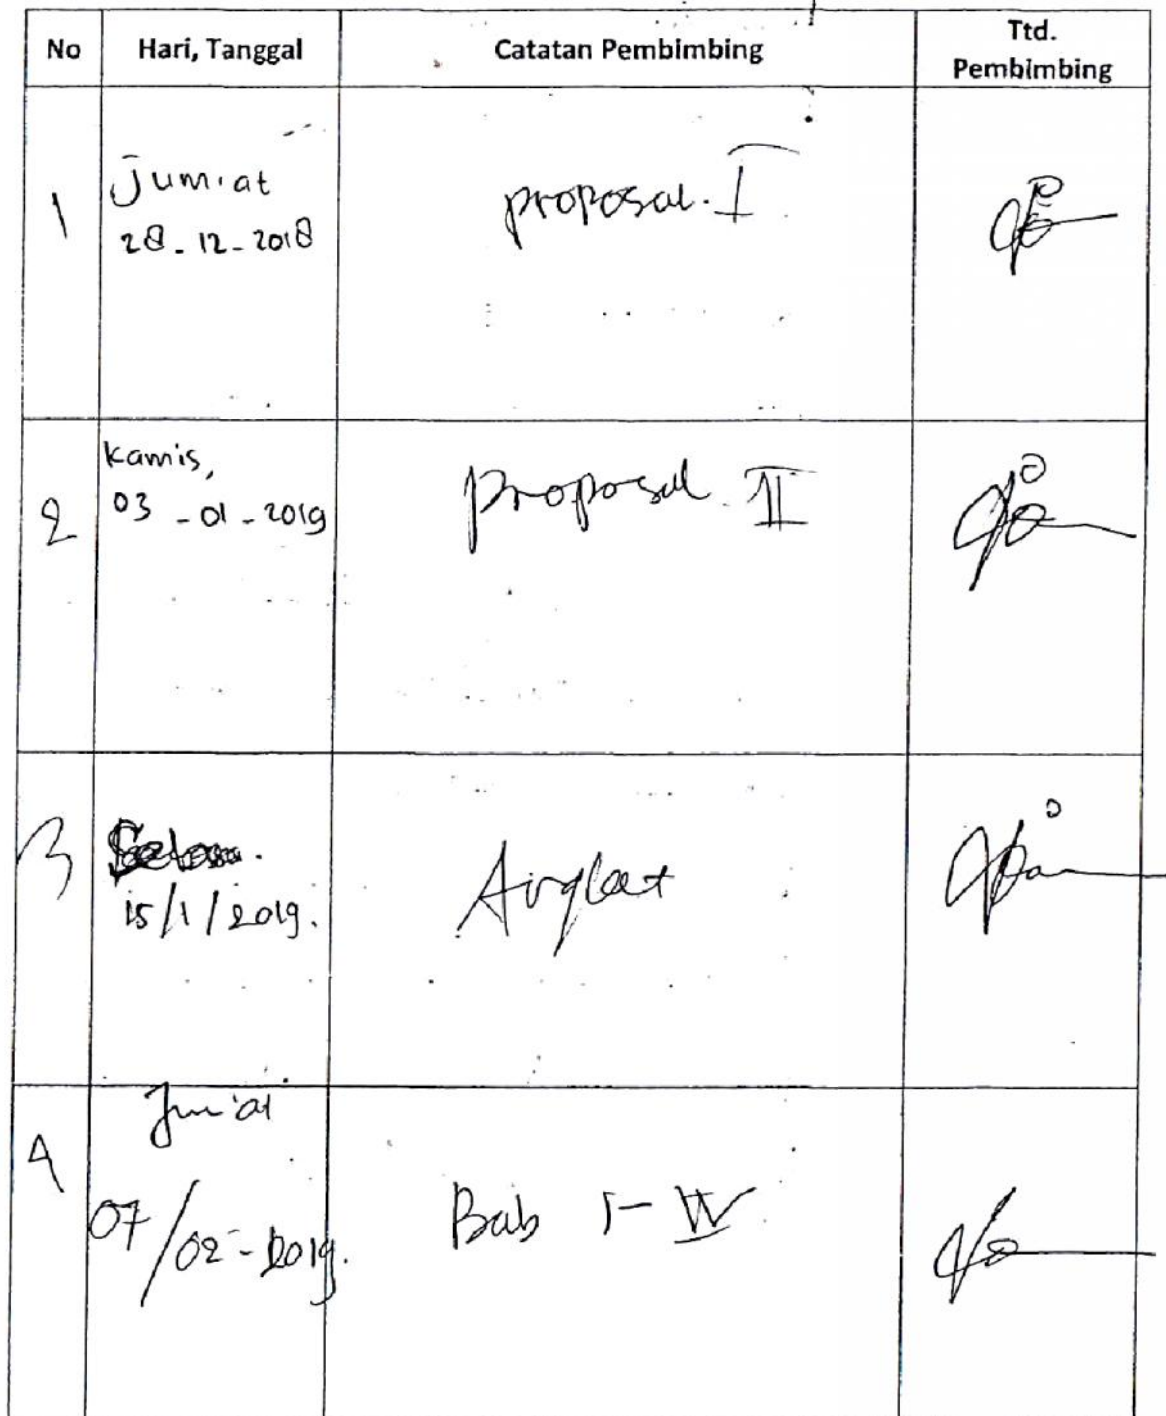 No Hari, Tanggal Catatan Pembimbing Ttd. Pembimbing
1 Jum'at
28-12-2018 proposal. I
2 Kamis,
03-01-2019 Proposal II
3 Selasa.
15/1/2019. Angket
4 Jum'at
07/02-2019. Bab I-IV